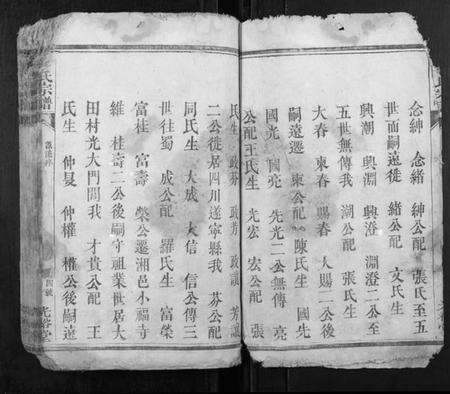 念紳 念緒 紳公配 張氏至五
世而嗣遠徙 緒公配 文氏生
興潮 興淵 興澄 淵澄二公至
五世無傳我 湖公配 張氏生
大春 東春 賜春 大賜二公後
嗣遠遷 東公配 陳氏生 國先
國光 國亮 先光二公無傳 亮
公配王氏生 宏 宏公配 張
氏生 政芬 政芳 政讓 芳讓
二公徙居四川遂寧縣我 芬公配
同氏生 大成 大信 信公傳三
世往蜀 成公配 羅氏生 富榮
富桂 富壽 榮公遷湘邑小福寺
維 桂壽二公後嗣守祖業世居大
田村光大門閭我 才貴公配 王
氏生 仲旻 仲權 權公後嗣遠
氏宗譜